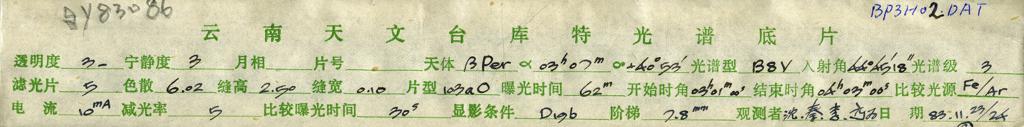 AY83086
BP3H02.DAT
云南天文台库特光谱底片
透明度 3- 宁静度 3 月相 片号 天体 β Per α 03h07m δ +40°53′ 光谱型 B8V 入射角 44°45′18″ 光谱级 3
滤光片 5 色散 6.02 缝高 2.50 缝宽 0.10 片型 103aO 曝光时间 62m 开始时角 03h01m00s 结束时角 04h03m00s 比较光源 Fe/Ar
电流 10mA 减光率 5 比较曝光时间 30s 显影条件 D19b 阶梯 7.8mm 观测者 沈.秦.李. 日期 83.11.23/24